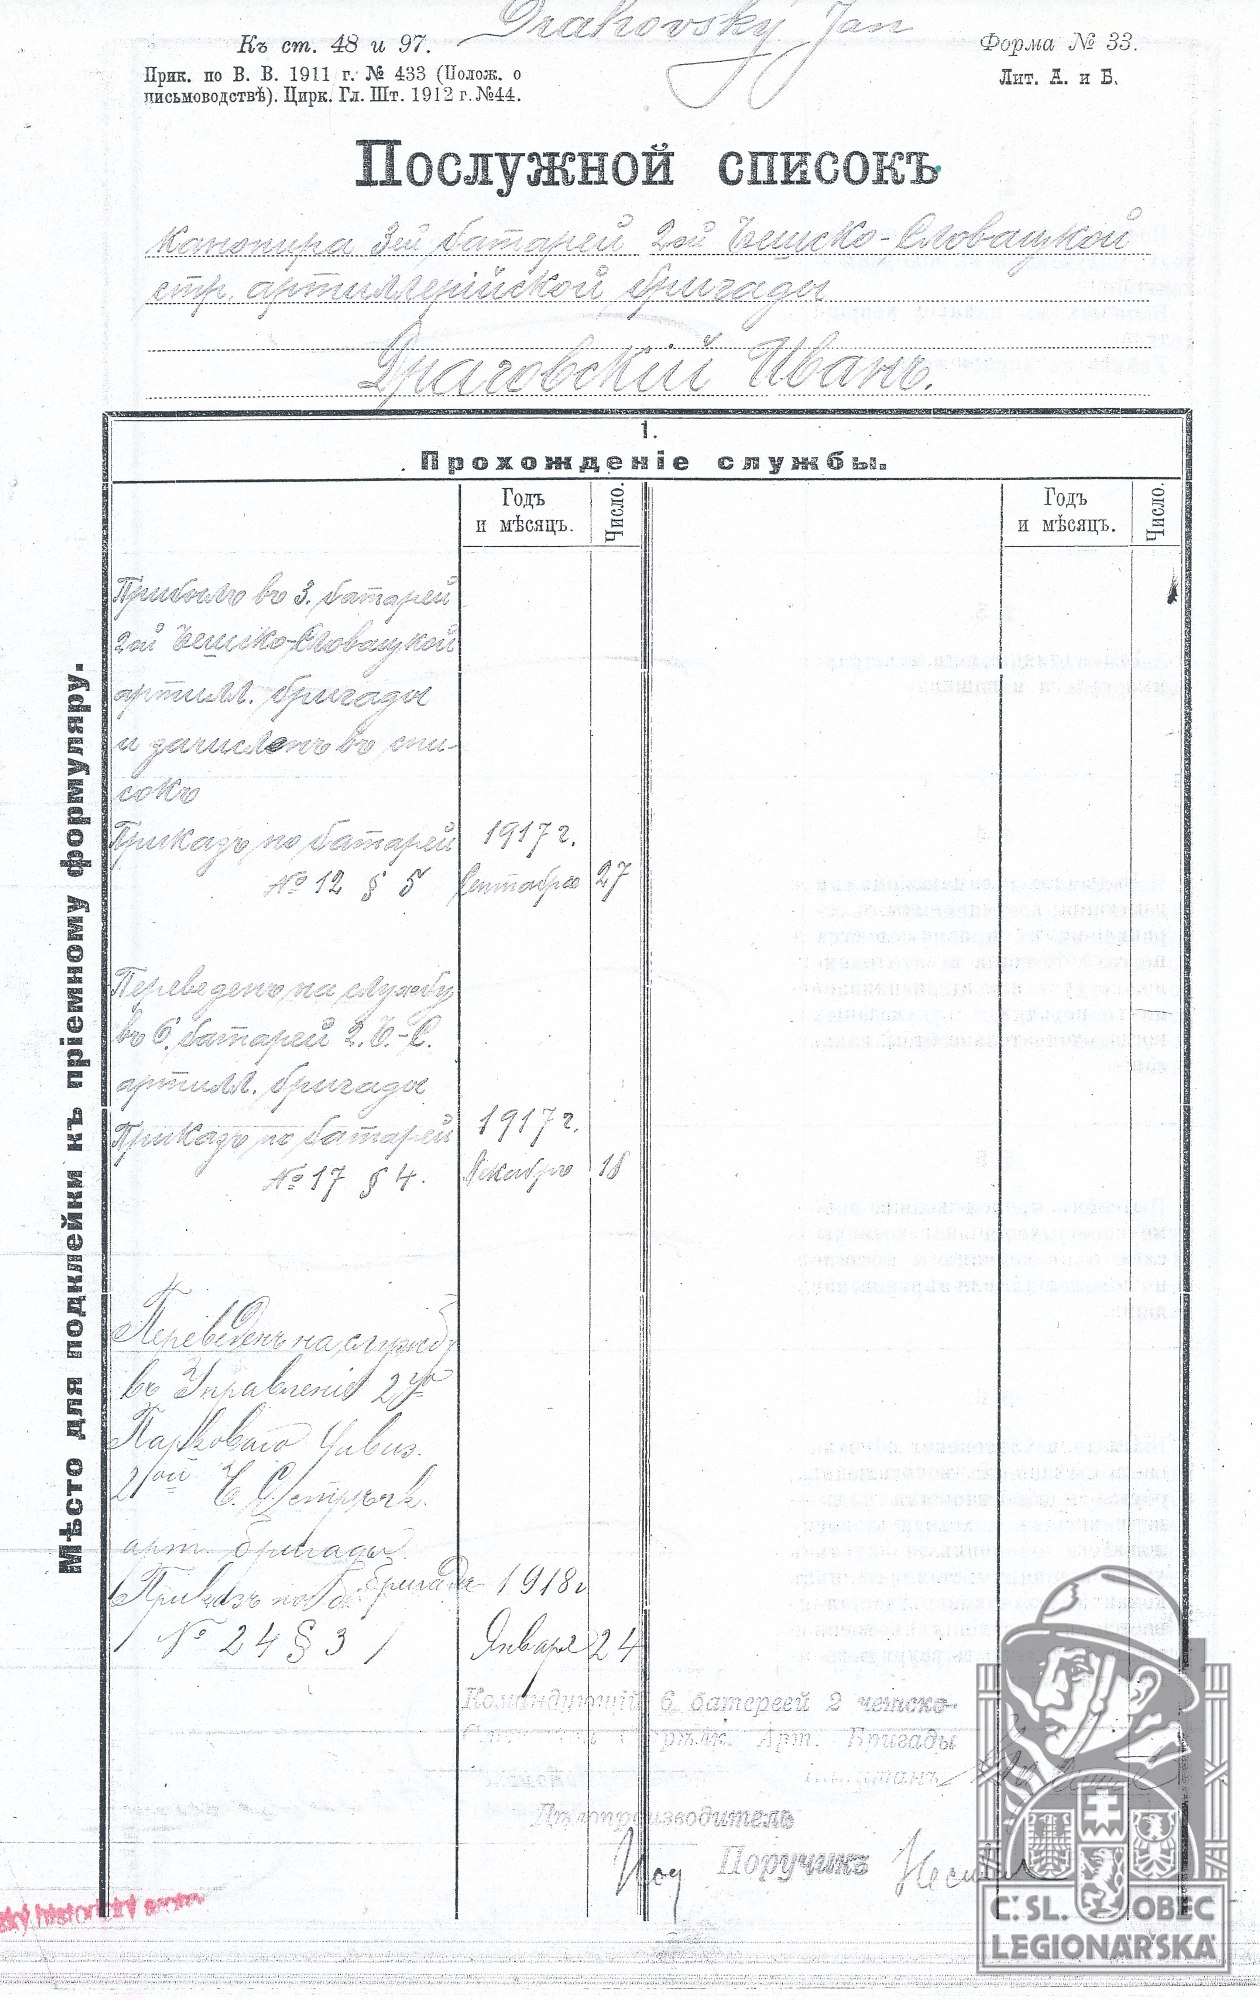 Drakovský Jan
Къ ст. 48 и 97.
Форма № 33.
Прик. по В. В. 1911 г. № 433 (Полож. о
письмоводствѣ). Цирк. Гл. Шт. 1912 г. №44.
Лит. А. и Б.
Послужной списокъ
канонира 3ей батареи 2ой Чешско-Словацкой
стр. артиллерійской бригады
Драговскій Иванъ.
1.
Прохожденіе службы.
Годъ
и мѣсяцъ.
Число.
Годъ
и мѣсяцъ.
Число.
Мѣсто для подклейки къ пріемному формуляру.
Прибылъ въ 3. батарей
2ой Чешско-Словацкой
артилл. бригады
и зачисленъ въ спи-
сокъ
Приказъ по батарей 1917 г.
№ 12 § 5 Сентября 27
Переведенъ на службу
въ 6. батарей 2. Ч.-С.
артилл. бригады
Приказъ по батарей 1917 г.
№ 17 § 4. Декабрь 18
Переведенъ на службу
въ Управленіе 2го
Парковаго Дивиз.
2ой Ч. С. стрѣлк.
арт. бригады.
Приказъ по бригадѣ 1918 г
№ 24 § 3 Января 24
Командующій 6 батереей 2 чешско-
Стрѣлк. Арт. Бригады
Капитанъ
Дѣлопроизводитель
Под Поручикъ
ský historický
Č. SL. OBEC
LEGIONÁŘSKÁ